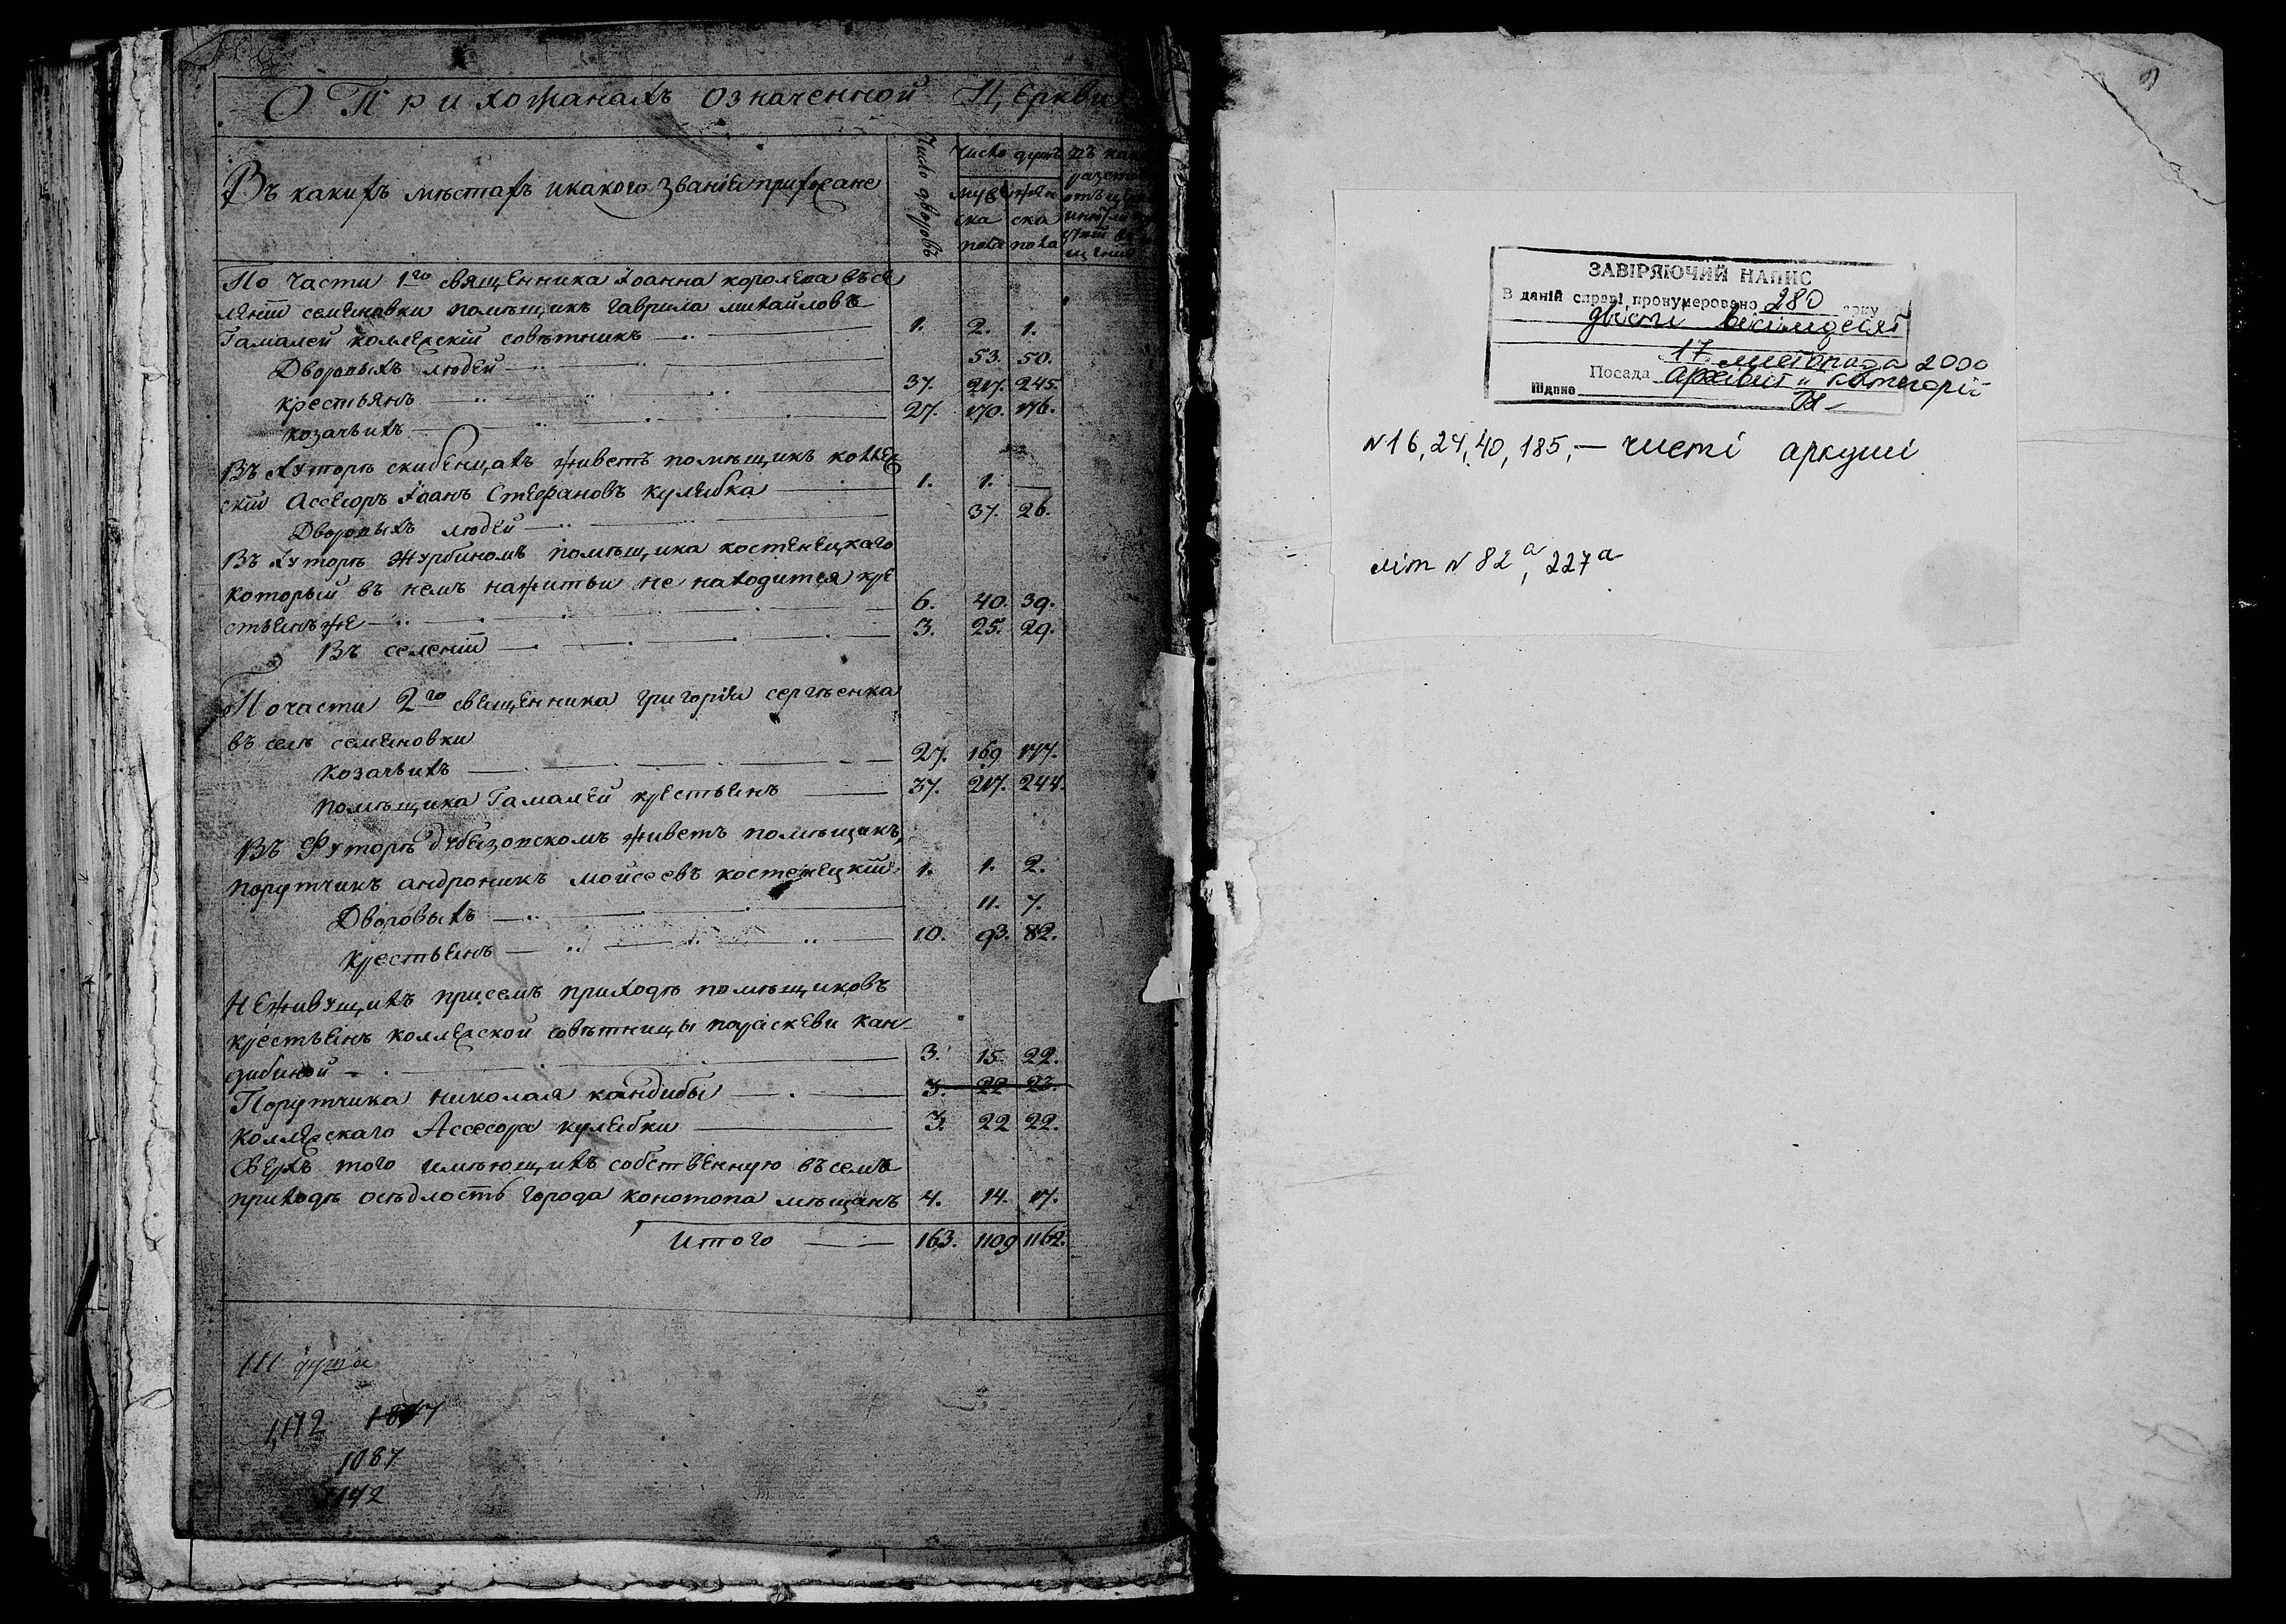 О Прихожанахъ означенной Церкви
Въ какихъ мѣстахъ и какого званія прихожане
Число дворовъ
Число душъ
муже
ска
пола
женс
ска
пола
По части 1го священника Іоанна королева въ се
леніи семяновки помѣщикъ Гаврила михайловъ
Гамалей коллежскій совѣтникъ — 1. 2. 1.
Дворовыхъ людей — 53. 50.
крестьянъ — 37. 217. 245.
козачьихъ — 27. 170. 176.
Въ хуторѣ скибенцахъ живетъ помѣщикъ коллеж
скій Ассесоръ Іоанъ Стефановъ кулябка — 1. 1. —
Дворовыхъ людей — 37. 26.
Въ хуторѣ журбиномъ помѣщика костенецкаго
который въ немъ нажитьи не находится кре
стьянъ же — 6. 40. 39.
Въ селеніи — 3. 25. 29.
По части 2го священника григорія сергѣенка
въ селѣ семяновки
Козачьихъ — 27. 169 177.
помѣщика Гамалѣи крестьянъ — 37. 217. 244.
Въ Футорѣ живетъ помѣщикъ,
порутчикъ андроникъ мойсеевъ костенецкій 1. 1. 2.
Дворовыхъ — 11. 7.
крестьянъ — 10. 93. 82.
Неживущихъ присемъ приходѣ помѣщиковъ
крестьянъ коллежской совѣтницы параскеви кан-
дибиной — 3. 15. 22.
Порутчика николая кандибы — 3. 22 23.
коллежскаго Ассесора кулябки — 3. 22 22.
Сверхъ того имѣющихъ собственную въ семъ
приходѣ осѣдлость города конотопа мѣщанъ 4. 14. 17.
Итого — 163. 1109 1162.
111 душа
1,172 1877
1087
1192
ЗАВІРЯЮЧИЙ НАПИС
В даній справі пронумеровано 280 арку
двісті вісімдесят
17 листопада 2000
Посада архівіст II категорії
Підпис
N 16, 24, 40, 185, — чисті аркуші
літ N 82 а, 227 а